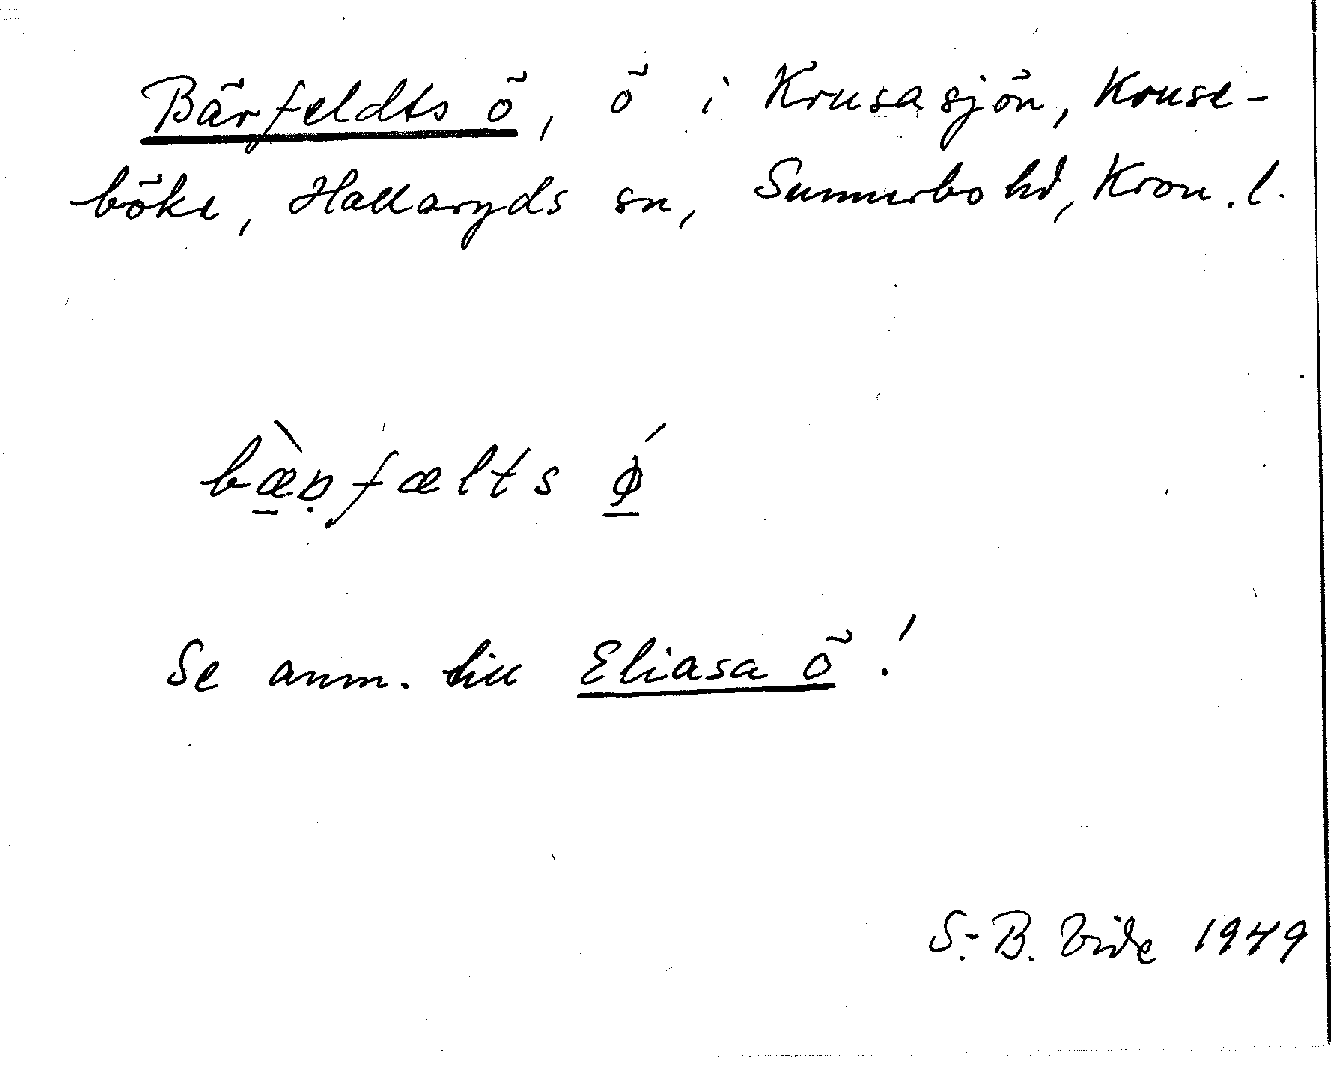 Bärfeldts ö, ö i Krusasjön, Kruse-
böke, Hallaryds sn, Sunnerbo hd, Kron. l.
bæ̠̀ṇfælts ǿ̠
Se anm. till Eliasa ö!
S.-B. Vide 1949